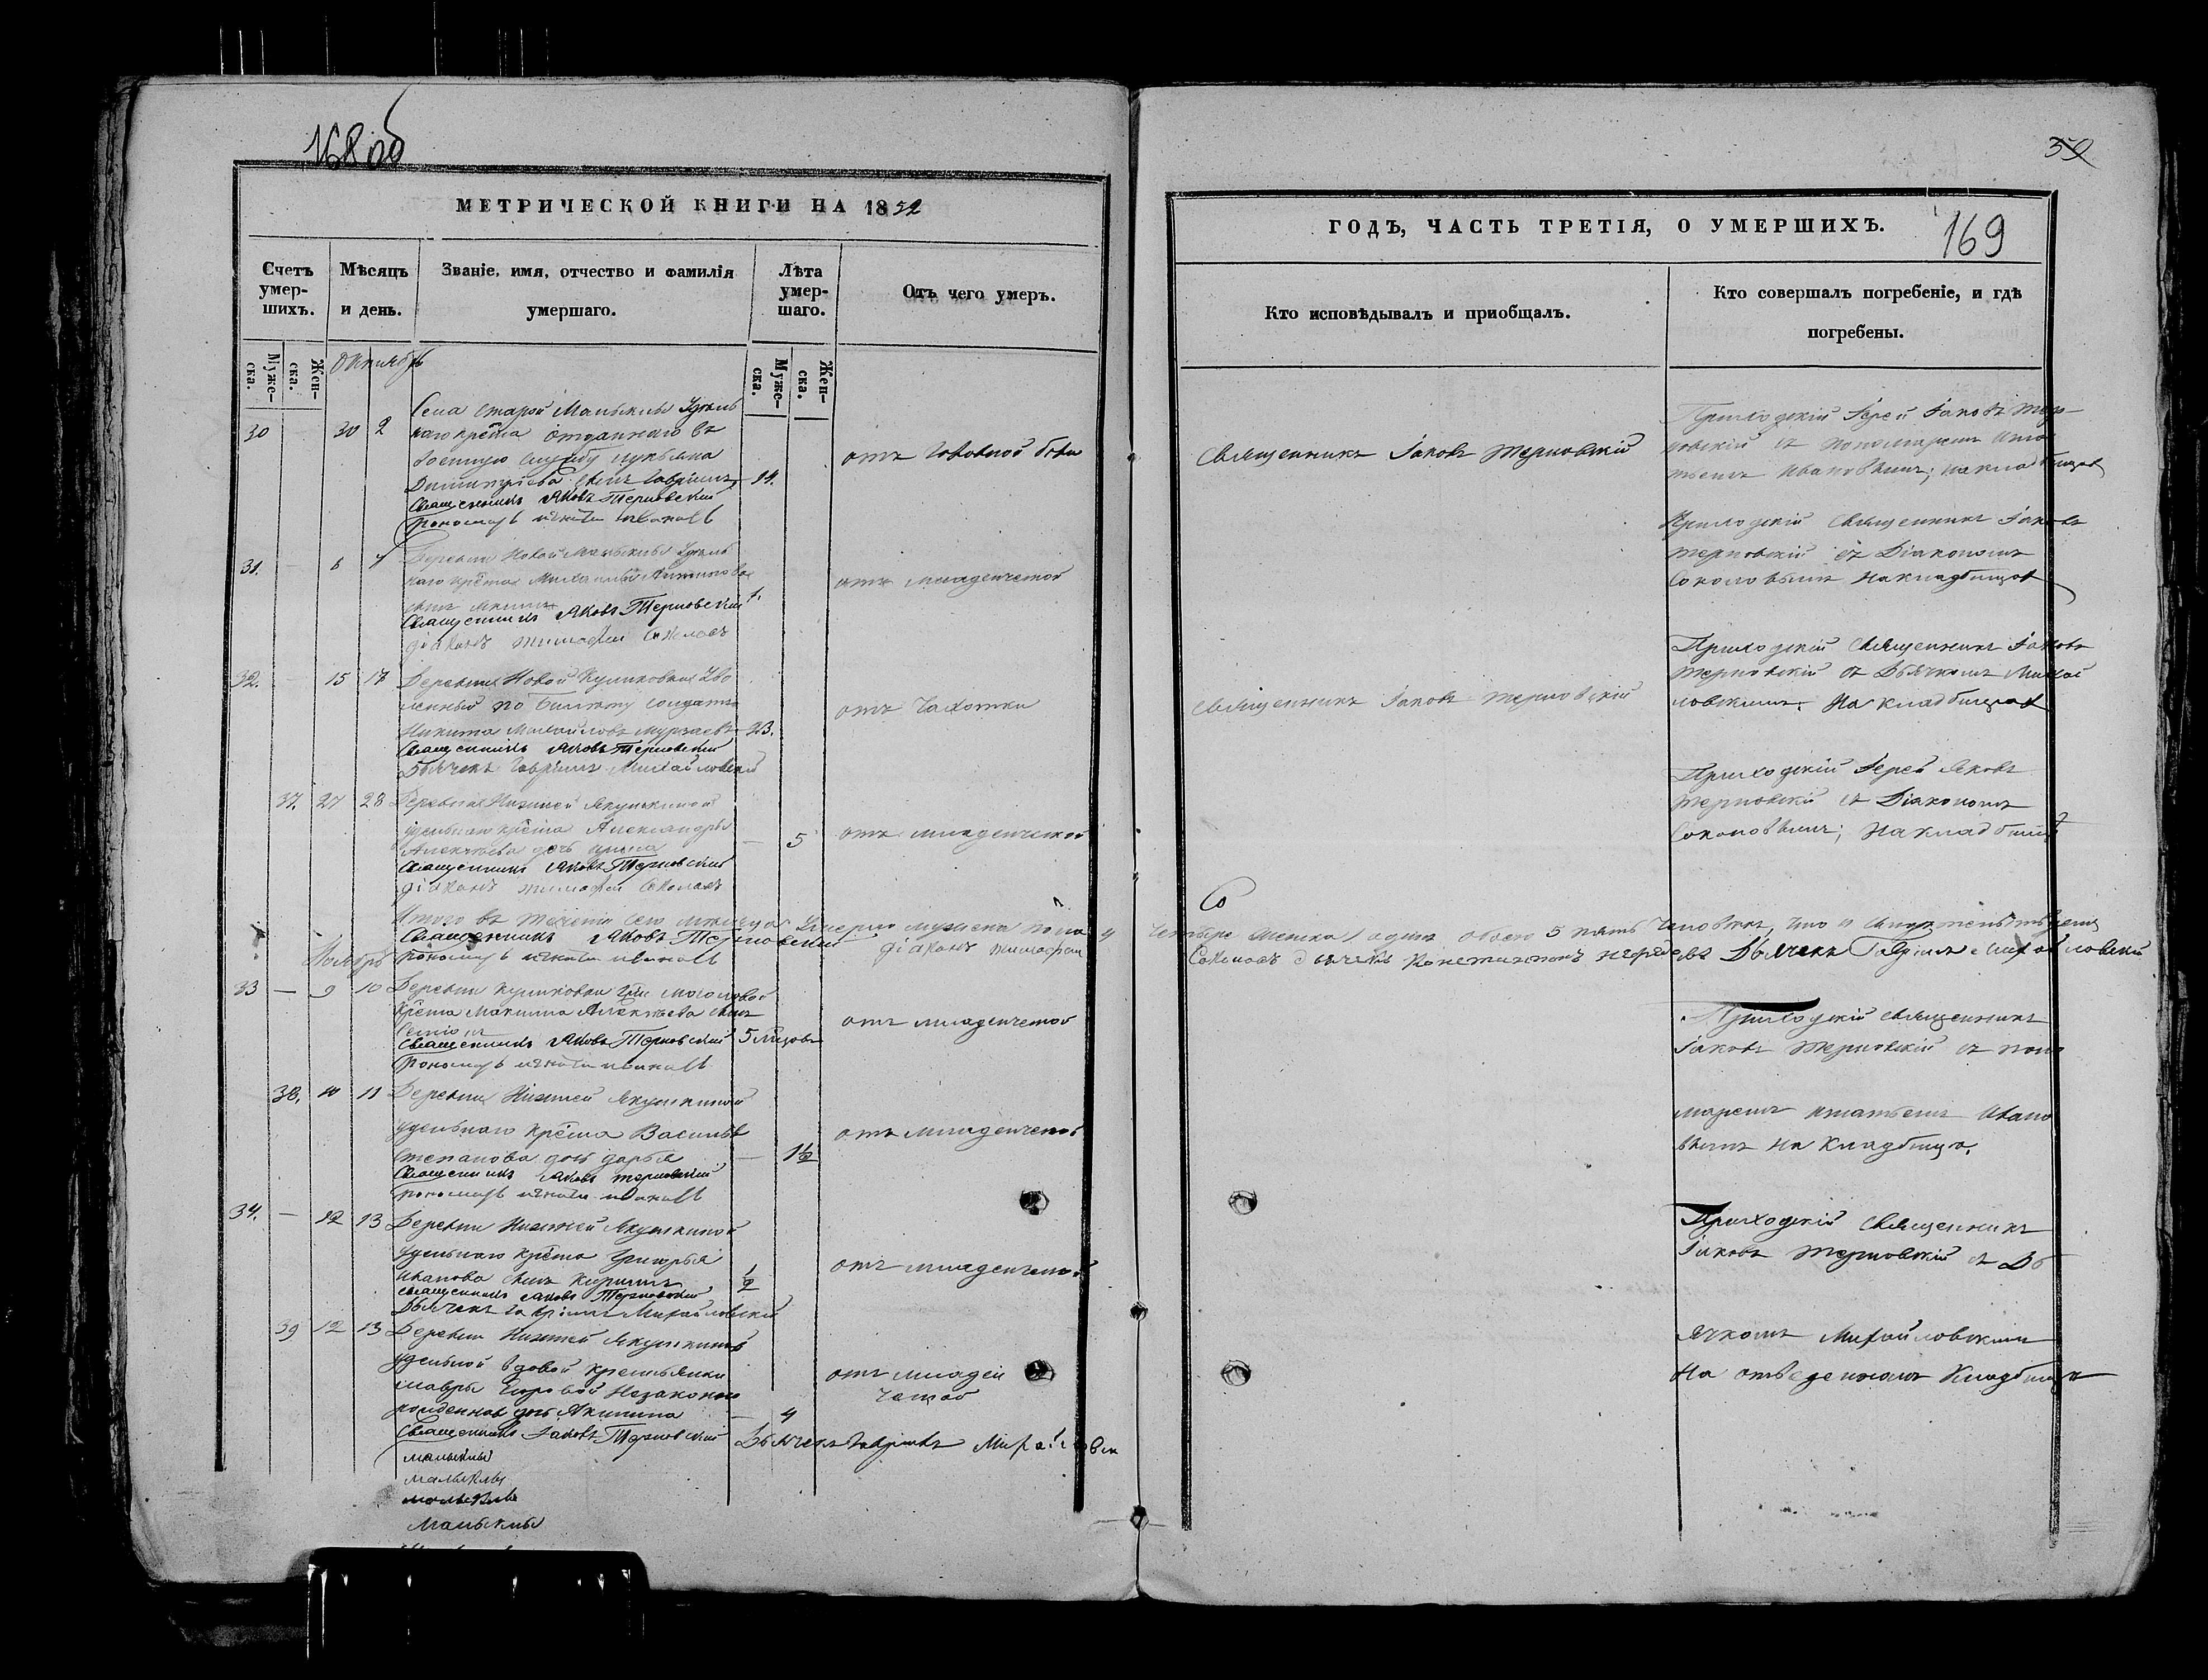 168 об
МЕТРИЧЕСКОЙ КНИГИ НА 1852
Счетъ умер-шихъ.
Мѣсяцъ и день.
Званіе, имя, отчество и фамилія умершаго.
Лѣта умер-шаго.
Отъ чего умеръ.
Муже-ска.
Жен-ска.
Муже-ска.
Жен-ска.
Октябрь
30 30 2
Села Старой Малыклы Удѣль
наго крѣс̃на отданнаго въ
военную службу
Димитріева сынъ Гавріилъ 14.
Священникъ Яковъ Терновскій
Пономарь Игнатій Ивановъ
отъ головной боли
31. — 6 7
Деревни Новой Малыклы Удѣль
сынъ
Священникъ Яковъ Терновскій 1.
Діаконъ Тимофей Соколовъ
отъ младенческой
32. — 15 17
Деревни Новой Куликовки Уво
ленный по билету солдатъ
Никита Михайловъ Мурзаевъ 23.
Священникъ Яковъ Терновскій
Дьячекъ Гавріилъ Михайловскій
отъ чахотки
37. 27 28
Деревни Нижней Якушкиной
удѣльнаго Александра
Алексѣева дочь Ирина — 5
Священникъ Яковъ Терновскій
Діаконъ Тимофей Соколовъ
отъ младенческой
Итого въ теченіи сего мѣсяца умерло мужска пола
Священникъ Яковъ Терновскій Діаконъ Тимофей
Пономарь Игнатій Ивановъ
Ноябрь
33 — 9 10
Деревни Куликовки
Максима Алексѣева сынъ
Священникъ Яковъ Терновскій 5
Пономарь Игнатій Ивановъ
отъ младенческой
38. 10 11
Деревни Нижней Якушкиной
удѣльнаго Василья
Степанова дочь Дарья — 1½
Священникъ Яковъ Терновскій
Пономарь Игнатій Ивановъ
отъ младенческой
34. — 12 13
Деревни Нижней Якушкиной
удѣльнаго Григорья
Иванова сынъ Кириллъ ½
Священникъ Яковъ Терновскій
Дьячекъ Гавріилъ Михайловскій
отъ младенческой
39 12 13
Деревни Нижней Якушкиной
удѣльной вдовой крестьянки
Мавры Егоровой незаконно
рожденная дочь Акилина — 4
Священникъ Іаковъ Терновскій Дьячекъ Гавріилъ Михайловск
отъ младен
ческой
малыклы
малыклы
малыклы
Малыклы
59
ГОДЪ, ЧАСТЬ ТРЕТІЯ, О УМЕРШИХЪ.
169
Кто исповѣдывалъ и пріобщалъ.
Кто совершалъ погребеніе, и гдѣ погребены.
Священникъ Іаковъ Терновскій
Приходскій Іерей Іаковъ Тер-
новскій съ пономаремъ Игна
тьемъ Ивановымъ, на кладбищѣ
Приходскій Священникъ Іаковъ
Терновскій съ Діакономъ
Соколовымъ на кладбищѣ
Священникъ Іаковъ Терновскій
Приходскій Священникъ Іаковъ
Терновскій съ Дьячкомъ Михай
ловскимъ. На кладбищѣ
Приходскій Іерей Яковъ
Терновскій съ Діакономъ
Соколовымъ; на кладбищѣ
четыре женска 1 одинъ обоего 5 пять человѣкъ, что и свидѣтельствуемъ
Соколовъ Дьячекъ Дьячекъ Гавріилъ Михайловскій
Приходскій священникъ
Іаковъ Терновскій съ поно
маремъ Игнатьемъ Ивано
вымъ на кладбищѣ.
Приходскій Священникъ
Іаковъ Терновскій съ Дь
ячкомъ Михайловскимъ
На отведенномъ кладбищѣ